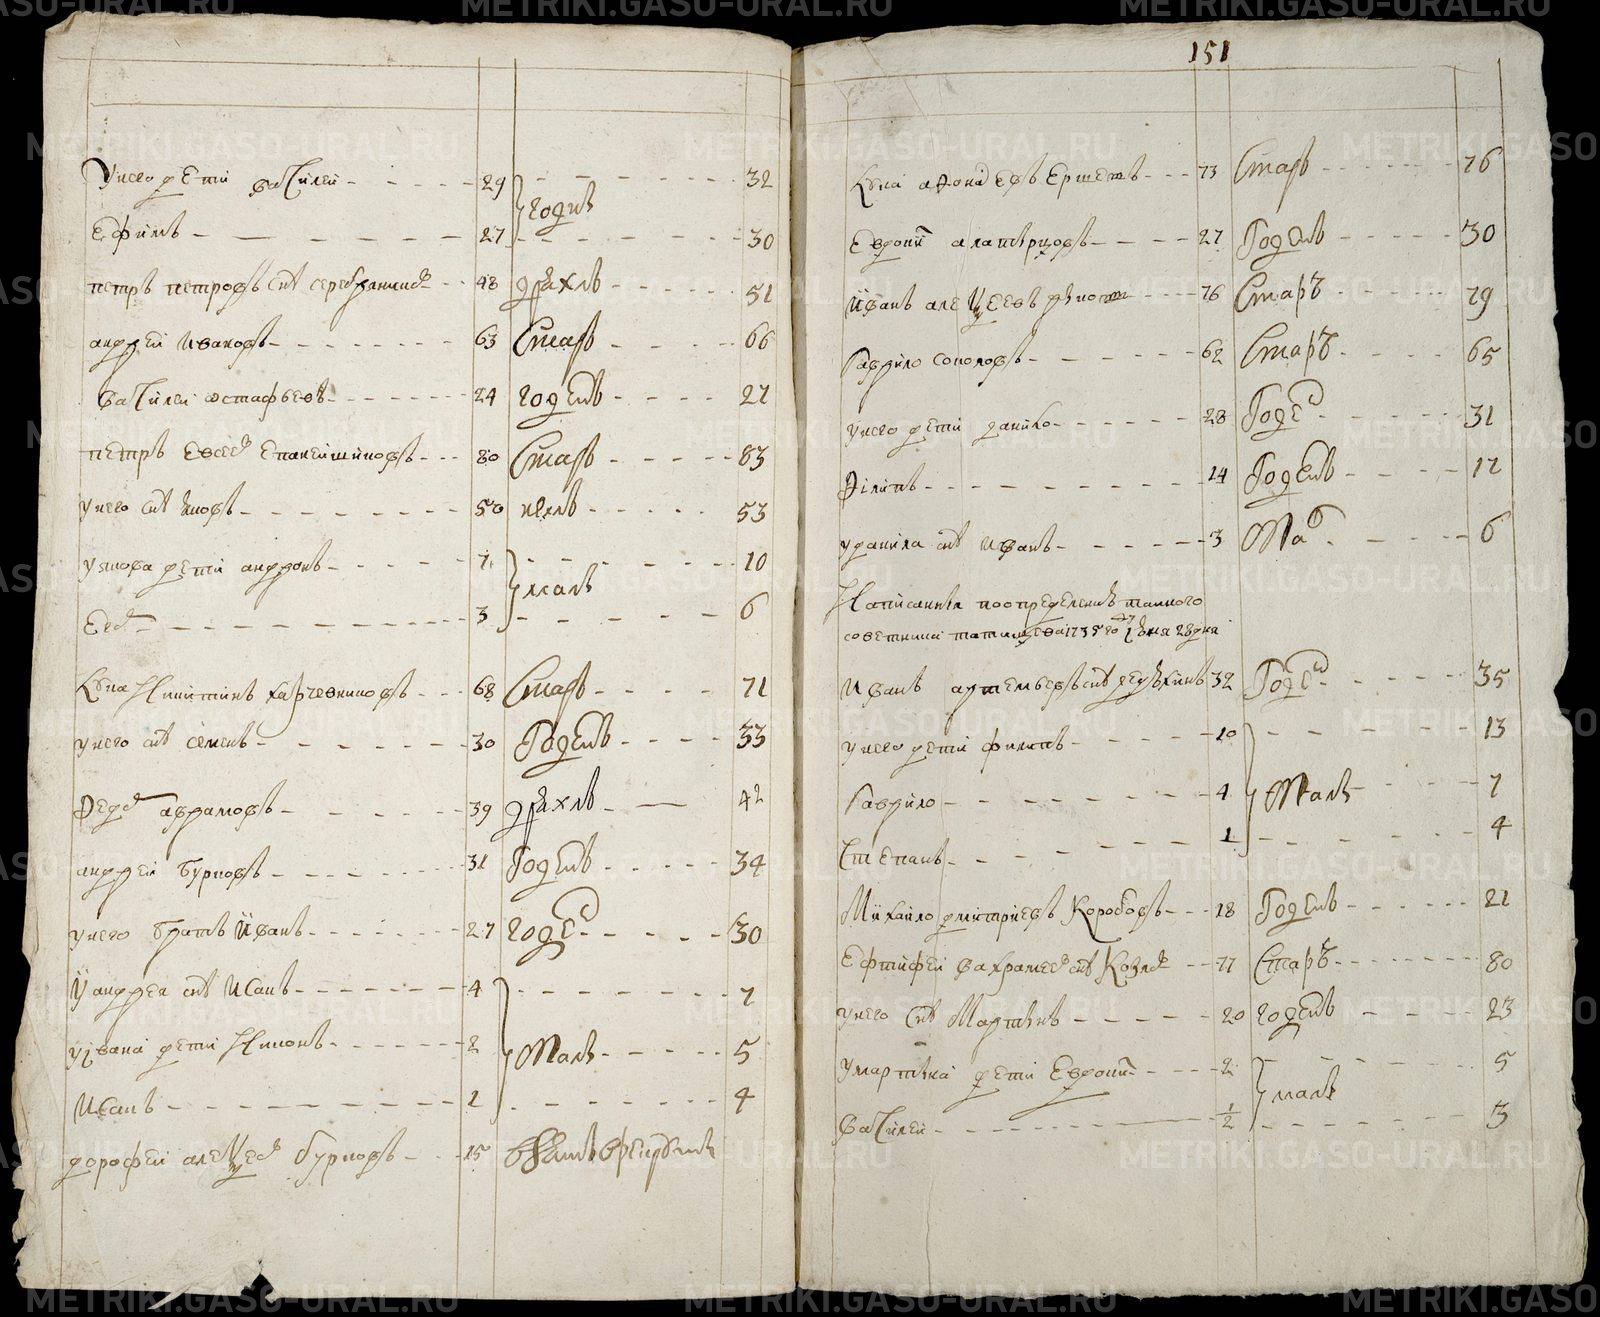 у него дети василей 29 32
годнъ
ефимъ 27 30
петръ петровъ снъ серебряников 48 дряхлъ 51
андрей ивановъ 63 старъ 66
василей остафьевъ 24 годенъ 27
петръ евсев епанешниковъ 80 старъ 83
у него снъ яковъ 50 53
у якова дети андронъ 7 10
малъ
3 6
никитинъ харчевниковъ 68 старъ 71
у него снъ семенъ 30 годенъ 33
фед аврамовъ 39 дряхлъ 42
андрей бурковъ 31 годенъ 34
у него братъ иванъ 27 годе 30
у андрея снъ исакъ 4 7
у ивана дети никонъ 2 малъ 5
исакъ 1 4
дорофей алексеев бурковъ 15
151
73 старъ 76
27 годенъ 30
иванъ алексеевъ 76 старъ 79
гаврило соколовъ 62 старъ 65
у него дети данило 28 годе 31
филипъ 14 годенъ 17
у данила снъ иванъ 3 ма 6
написанныя по определению тайного
советника татищева 1735 го июня 28 дня
иванъ артемьевъ снъ 32 годе 35
у него дети филипъ 10 13
гаврило 4 малъ 7
степанъ 1 4
михайло дмитриевъ коробовъ 18 годенъ 21
ефтифей вахрамеев снъ козлов 77 старъ 80
у него снъ мартынъ 20 годенъ 23
у мартына дети евдоким 2 5
малъ
василей 1/2 3
METRIKI.GASO-URAL.RU